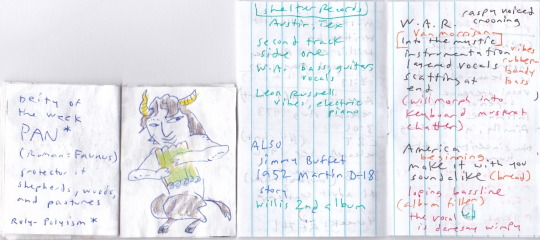 Deity of
the week
PAN *
(Roman: Faunus)
protector of
shepherds, woods,
and pastures
Roly-Polyism *
Shelter Records
Austin, Tex
second track
side one
W.A. bass, guitar,
vocals
Leon Russell
vibes, electric
piano
ALSO
Jimmy Buffet
1952 Martin D-18
story
Willis 2nd album
raspy voiced
crooning
W.A.R.
Van Morrison
Into the mystic
instrumentation
vibes
layered vocals
rubber
bandy
bass
scatting at
end
(will morph into
keyboard muskrat
chatter)
America
beginning
make it with you
soundalike (bread)
loping bassline
(album filler)
the vocal
is wimpy